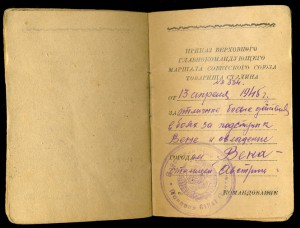 ПРИКАЗ ВЕРХОВНОГО
ГЛАВНОКОМАНДУЮЩЕГО
МАРШАЛА СОВЕТСКОГО СОЮЗА
ТОВАРИЩА СТАЛИНА
№ 334.
от 13 апреля 1945 г.
за отличные боевые действия
в боях за подступы к
Вене и овладение
городом Вена -
столицей Австрии.
КОМАНДОВАНИЕ